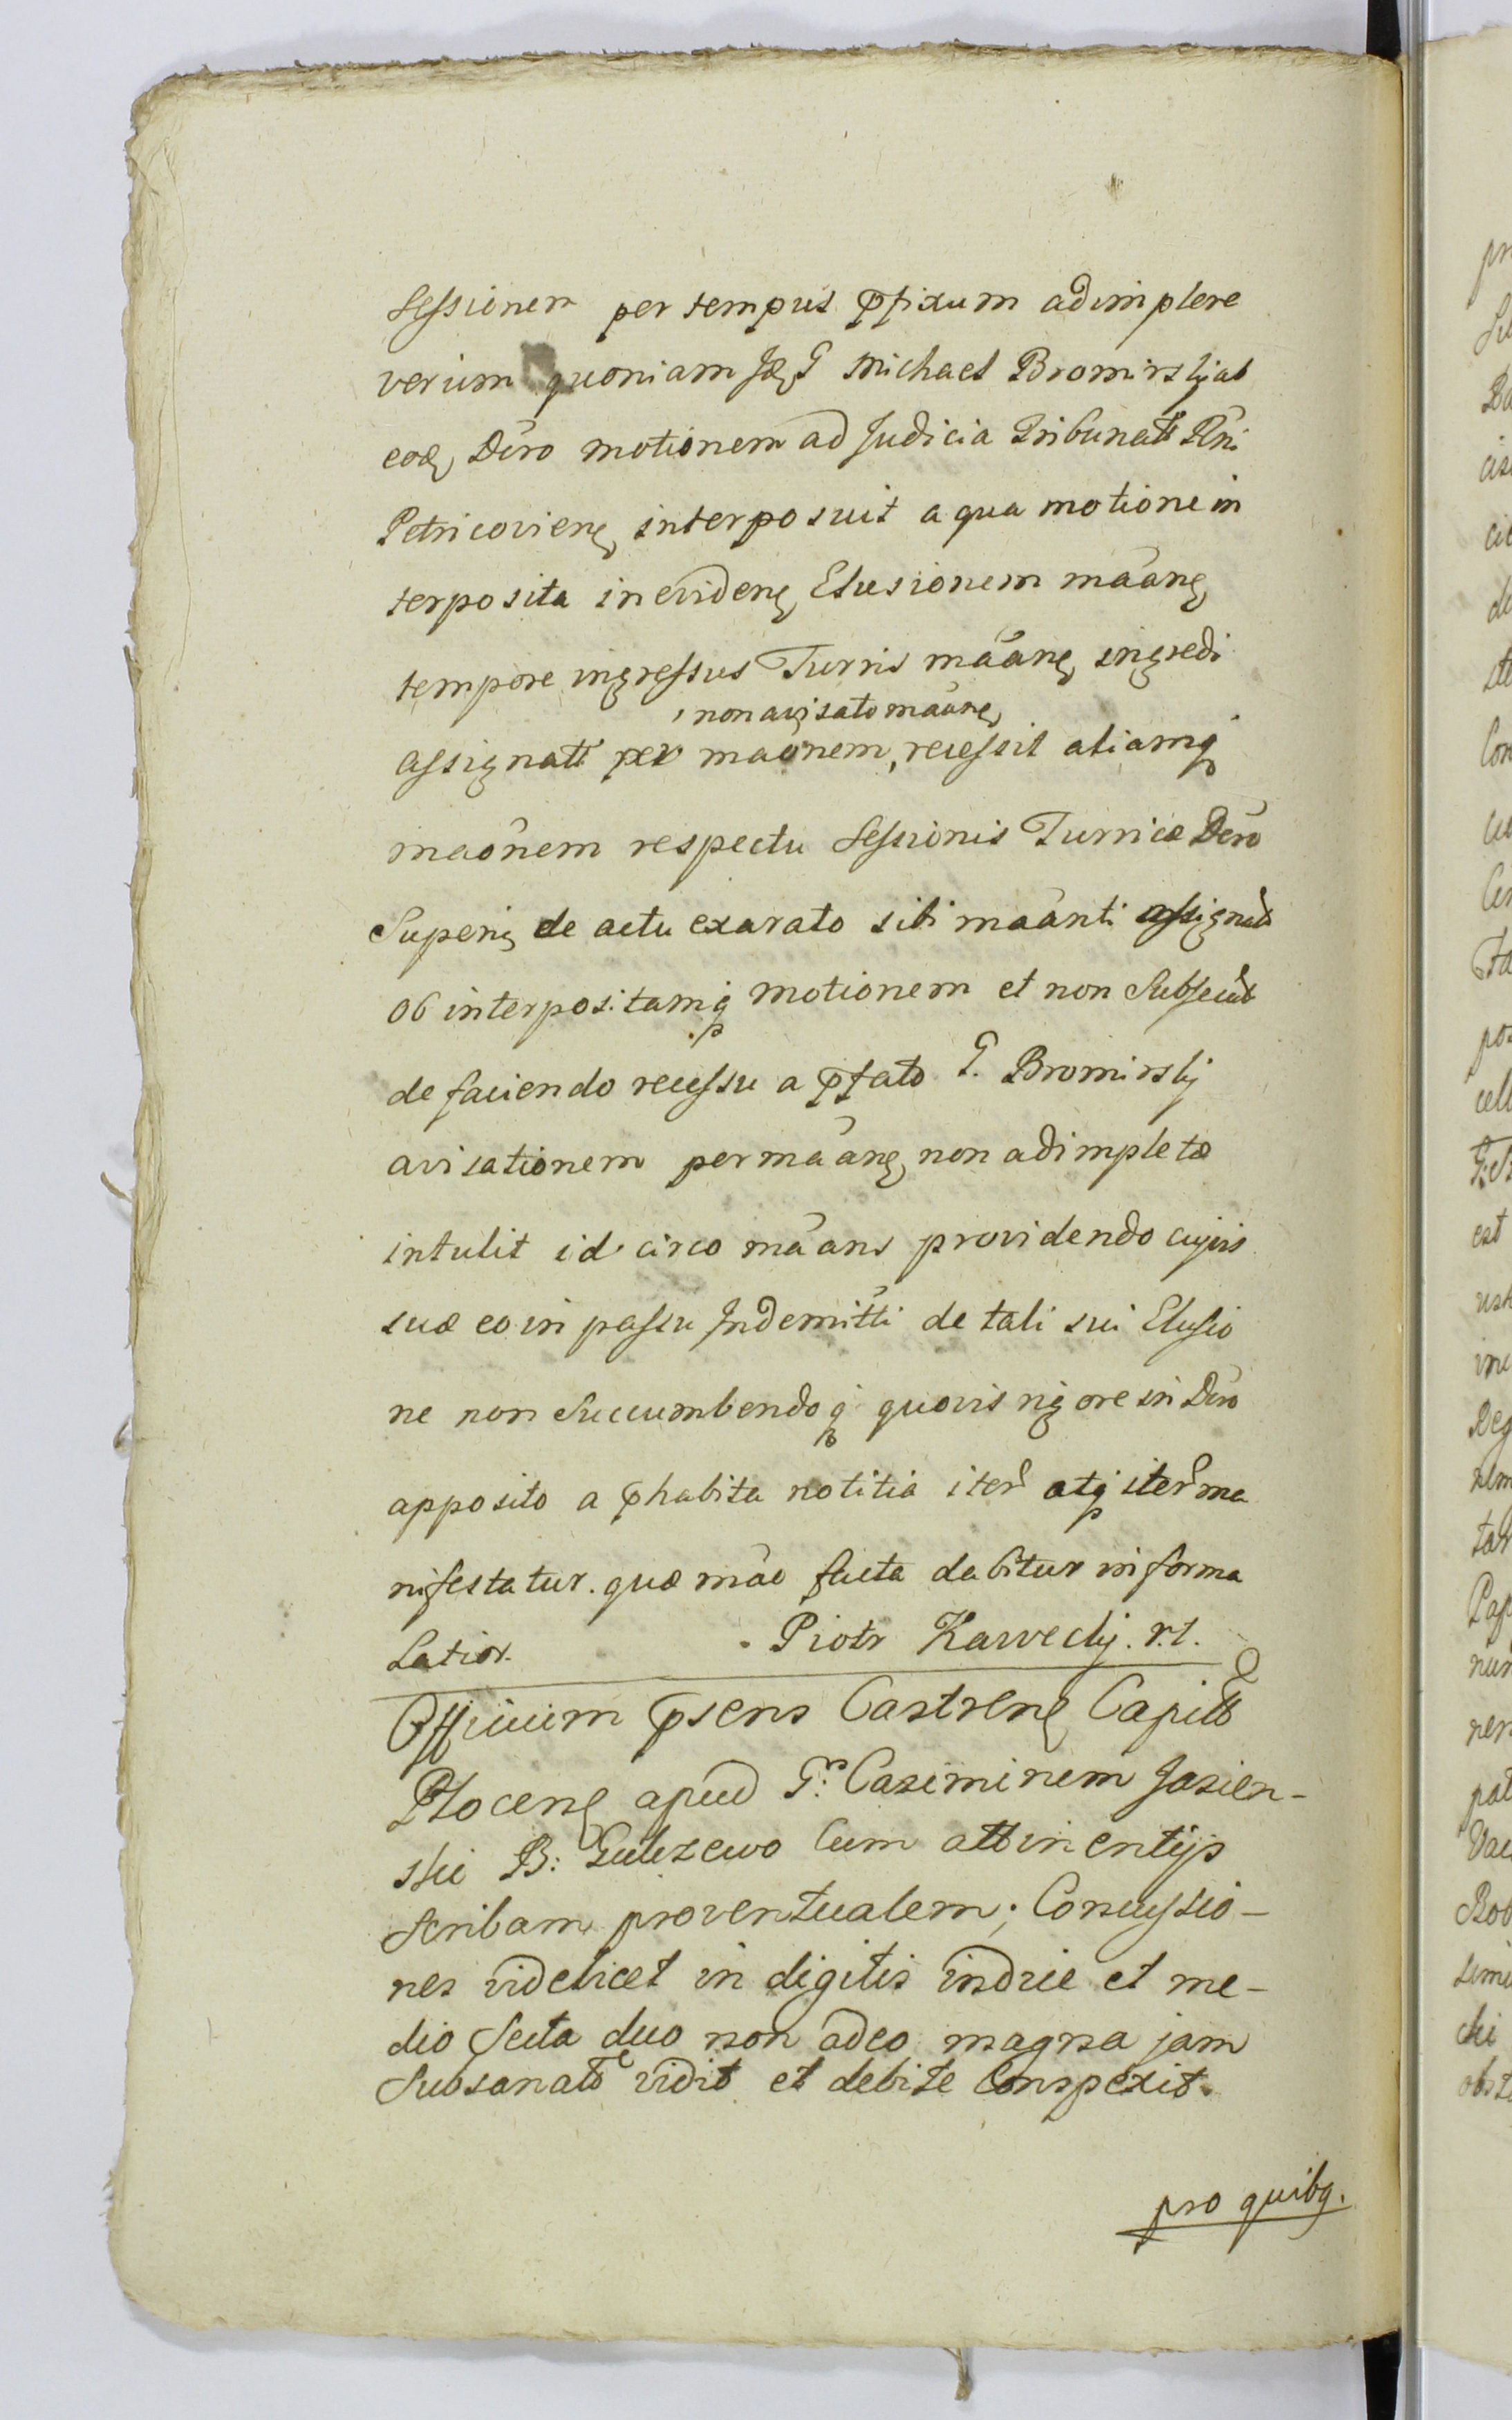 Sessionem per tempus pfixum adimplere
verum quoniam G Michael Bromirskj ab
eod Dcro motionem ad Judicia Tribunatt Rni
Petricovien interposuit a qua motione in
terposita in eviden Elusionem maan
tempore ingressus Turris maan ingredi
non avisato maane
assignatt per maonem, recessit aliamq
maonem respectu Sessionis Turricæ Dcro
Superi de actu exarato sibi maanti assignat
ob interpositamq motionem et non Subsecut
de faciendo recessu a pfato G. Bromirskj
avisationem per maan non adimpletæ
intulit id circo maans providendo cujvis
suæ eo in passu Indemitti de tali sui Elusio
ne non Succumbendo q quovis rigore in Dcro
apposito a phabita notitia iter atq iter ma
nifestatur. quæ mao facta dabitur in forma
Latior. Piotr Kaweckj. r.t.
Officium psens Castren Capitt
Plocen apud G: Casimirum Jasien-
ski B: Gulczewo Cum attinentijs
scribam proventualem; Concussio-
nes videlicet in digitis indice et me-
dio Scuta duo non adeo magna jam
Subsanata vidit et debite Conspexit.
pro quibq.